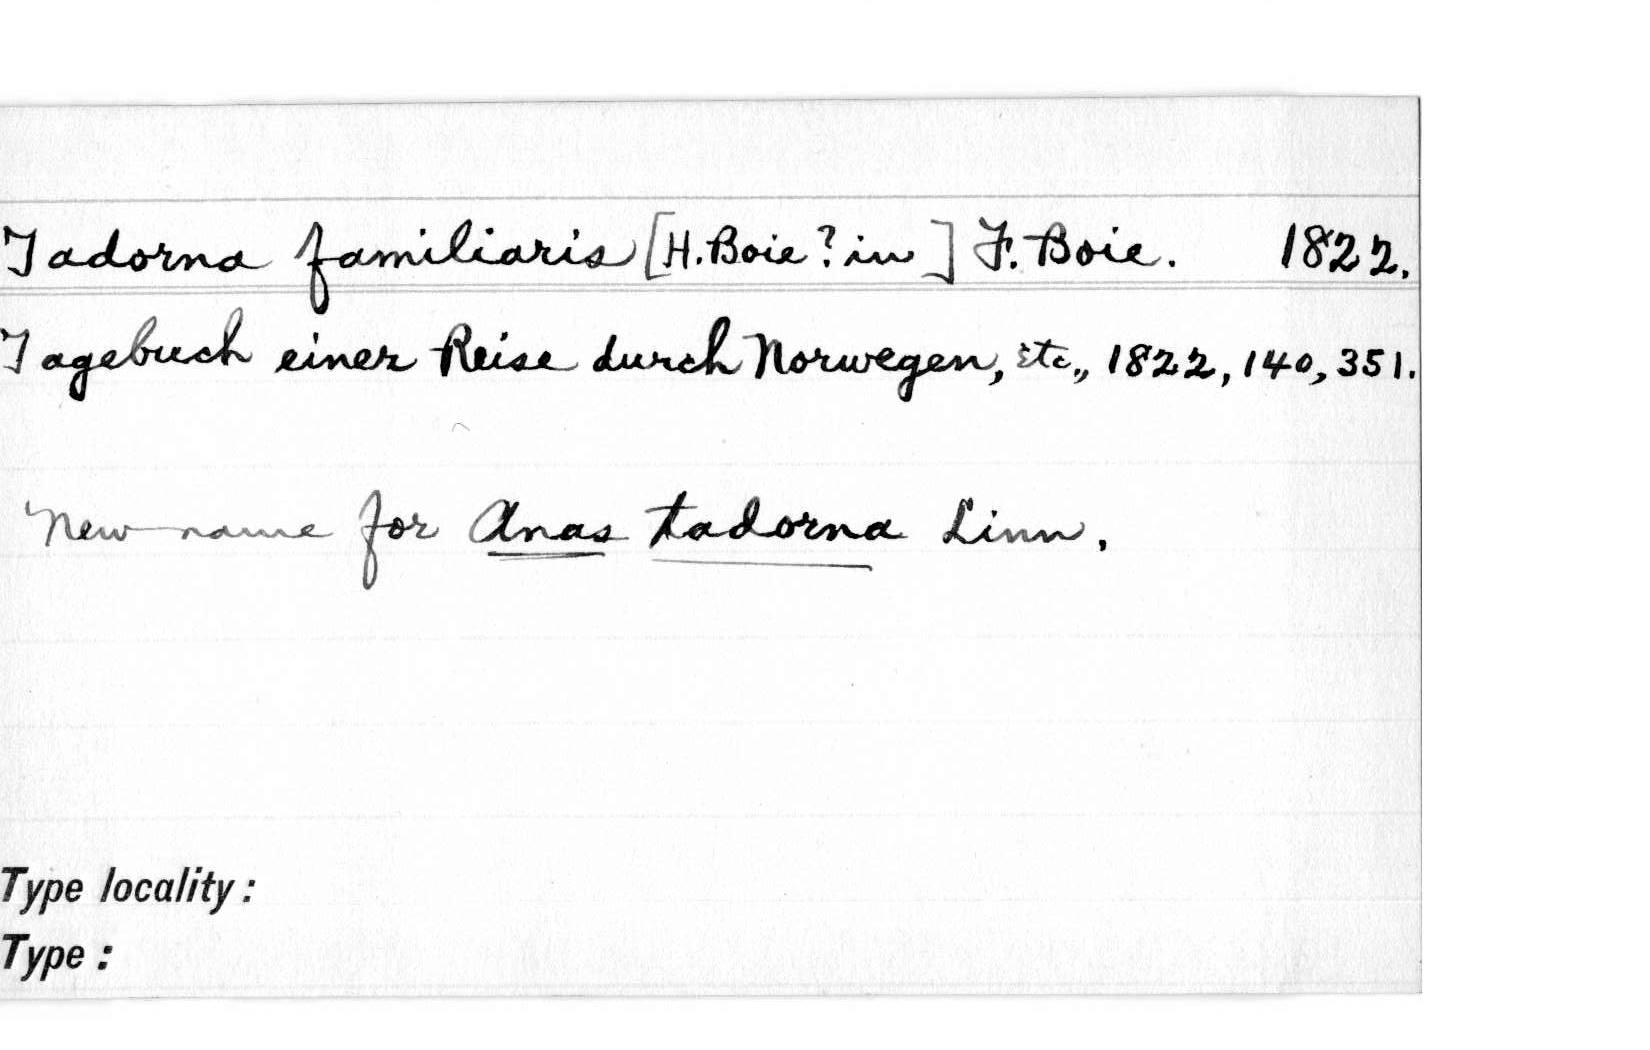 Tadorna familiaris [H. Boie? in] F. Boie. 1822.
Tagebuch einer Reise durch Norwegen, etc., 1822, 140, 351.
New name for Anas tadorna Linn.
Type locality:
Type: